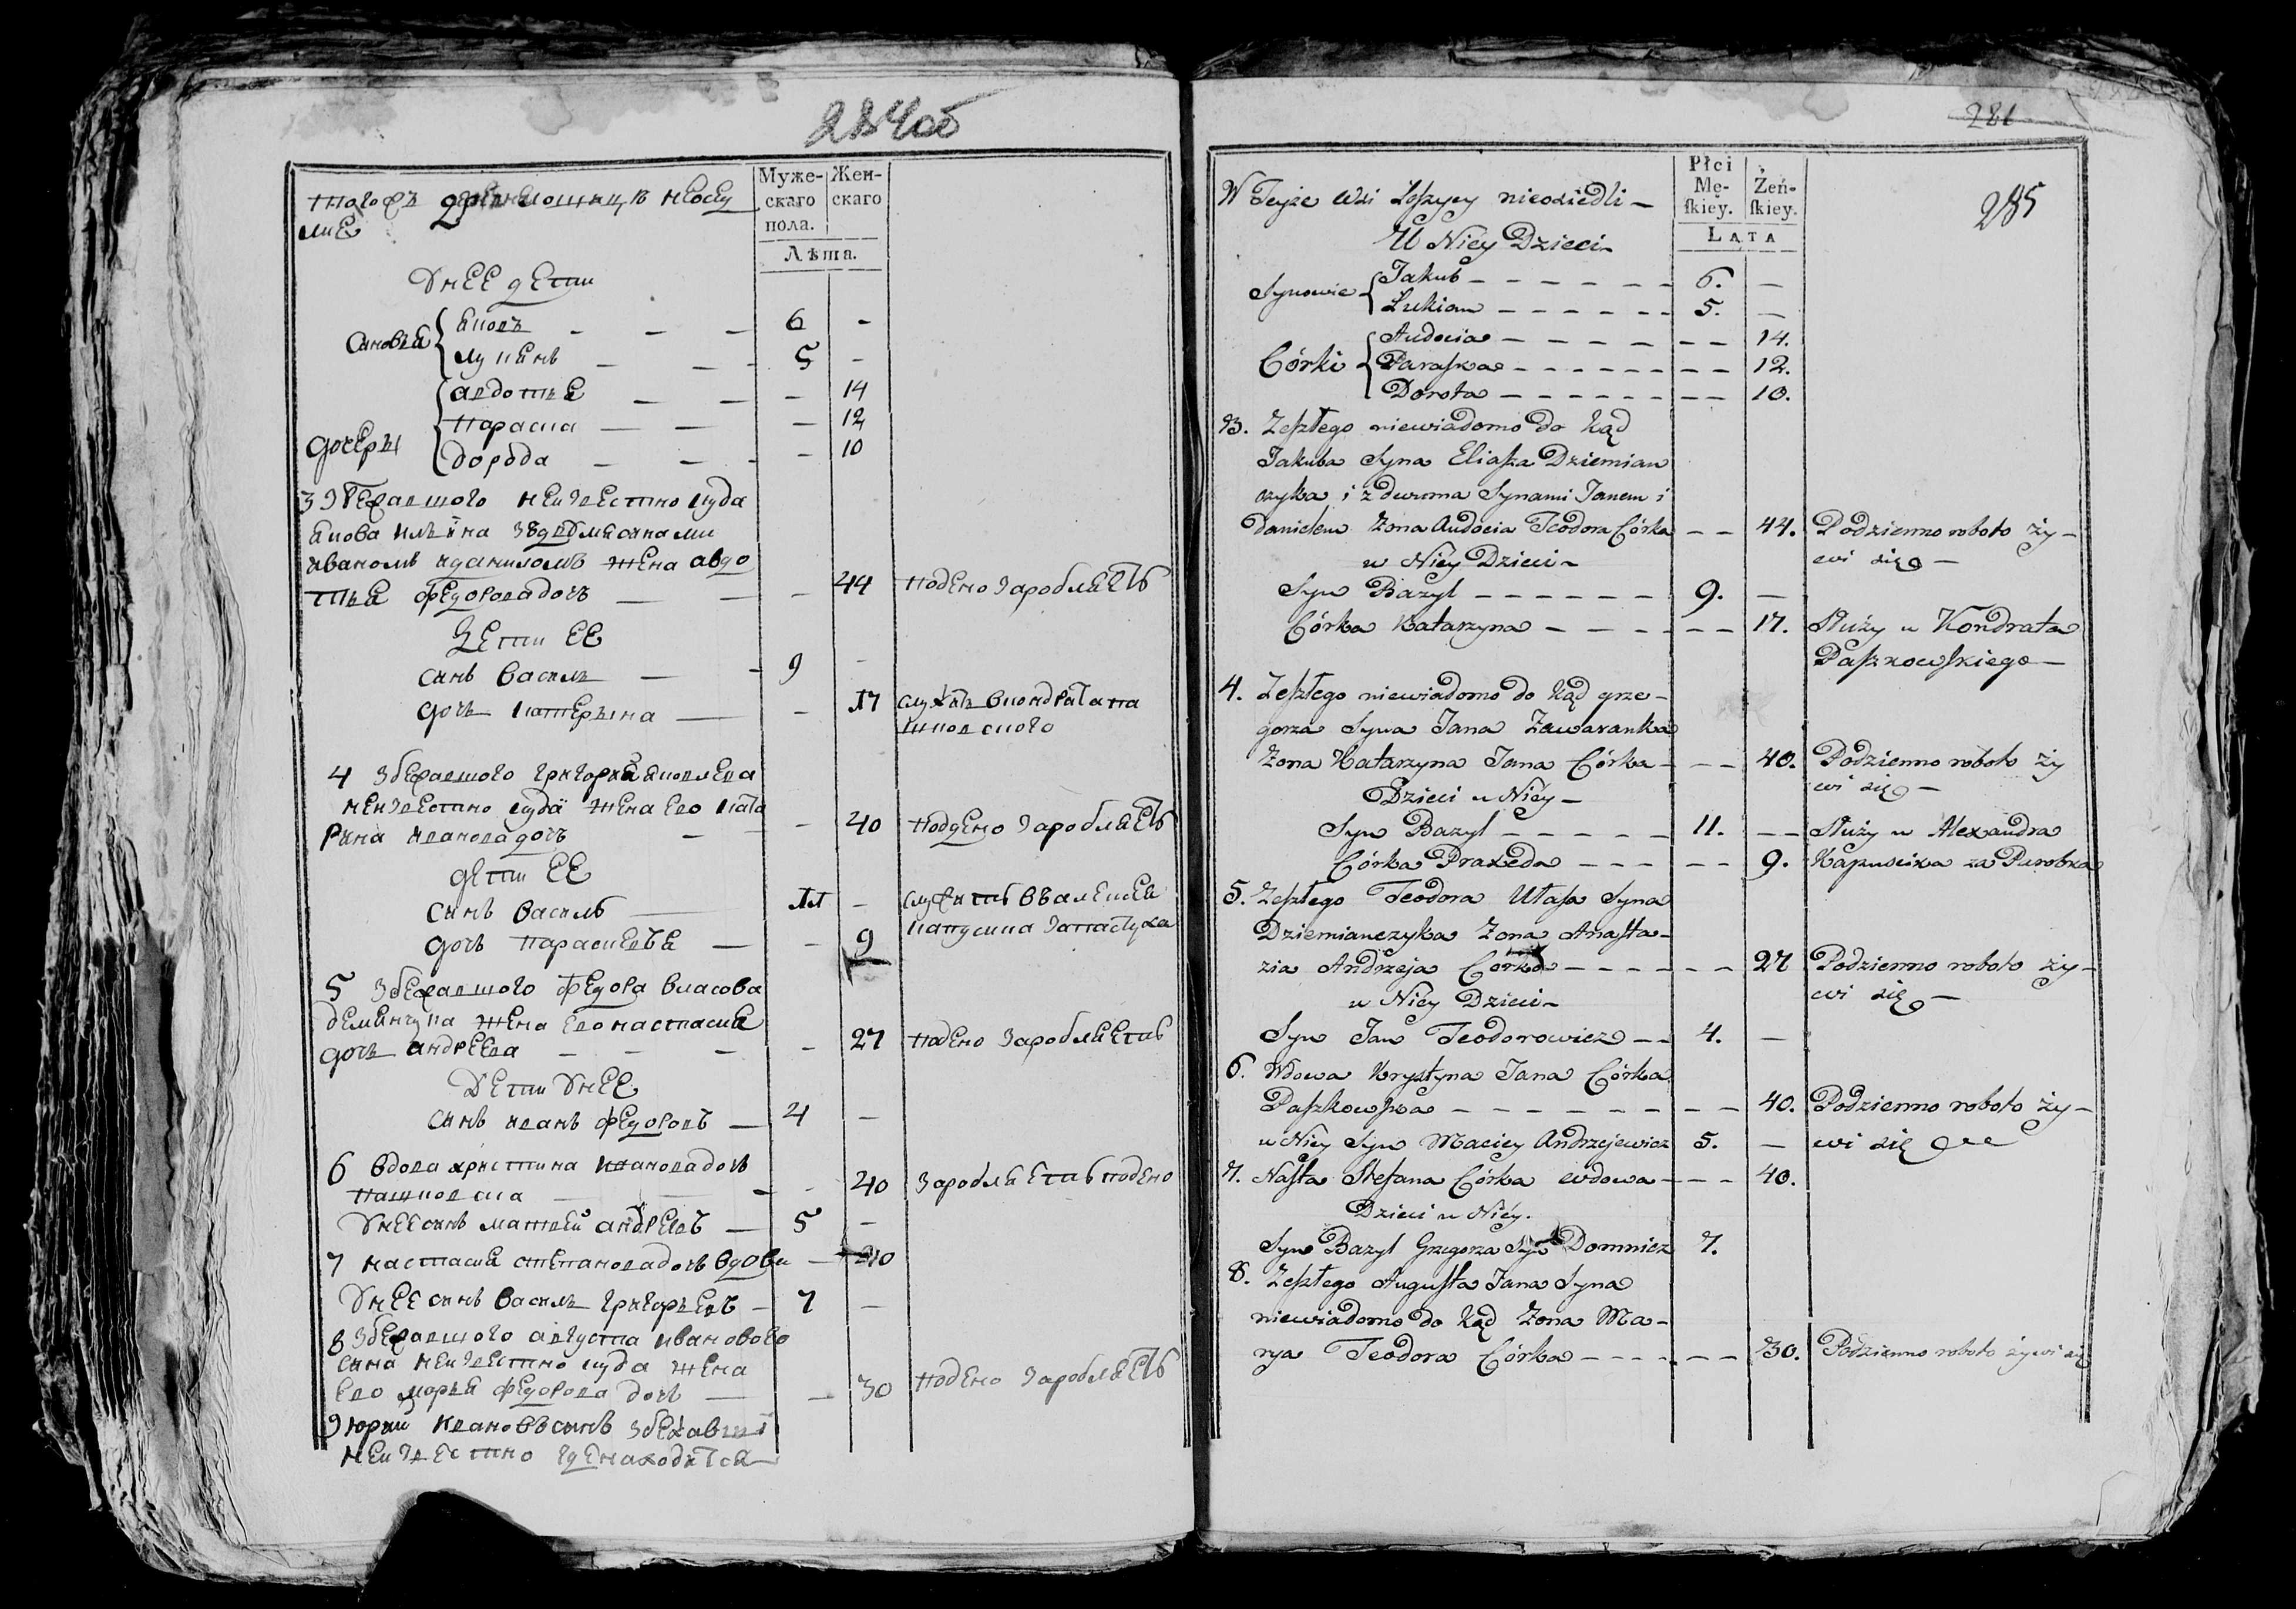 284об
Муже-
скаго
пола.
Жен-
скаго
Лѣта.
тогожъ
неосед
лие
Унее дети
Синовя
Яковъ - - - 6 -
лукянъ - - - 5 -
дочеры
авдотъя - - - 14
Параска - - - 12
дорода - - - 10
3 збежавшого неизвестно куда
якова илъина здвомясинами
иваномъ иданиломъ жена авдо
тъя федоровадочъ - - - 44 подено заробляетъ
Дети ее
синъ василъ - - 9 -
дочъ катерына - - 17 служитъ вкондратапа
шковского
4 збежавшого григория
неизвестно куда жена его ката
рина ивановадочъ - - 40 подено заробляетъ
дети ее
синъ василъ - 11 - служитъ
дочъ - - 9 капусика запастуха
5 збежавшого федора власова
демянчука жена его настасия
дочъ андреева - - - - 27 подено заробляетъ
Дети Унее
синъ иванъ федоровъ - 4 -
6 вдова христина ивановадочъ
пашковска - - - - 40 заробляетъ подено
Унеесинъ матвей андреевъ - 5 -
7 настасия степановадочъ вдова - 40
Унее синъ василъ григоръевъ - 7 -
8 збежавшого августа иванового
сина неизвестно куда жена
его маръя федорова дочъ - - 30 подено заробляетъ
9 юрий ивановъсинъ збежавши
неизвестно гденаходится
281
285
Płci
Mę-
skiey.
Żeń-
skiey.
LATA
W Teyże Wsi Leszycy nieosiedli -
U Niey Dzieci -
Synowie
Jakub - - - - - - 6. -
Lukian - - - - - - 5. -
Córki
Audocia - - - - - - - 14.
Paraska - - - - - - - 12.
Dorota - - - - - - - 10.
3. Zeszłego niewiadomo do kąd
Jakuba Syna Eliasza Dziemian
czyka i z dwoma Synami Janem i
Danielem Zona Audocia Teodora Córka - - 44. Podzienno roboto ży -
u Niey Dzieci - wi się -
Syn Bazyl - - - - - - 9. -
Córka Katarzyna - - - - - - 17. Służy u Kondrata
Paszkowskiego -
4. Zeszłego niewiadomo do kąd grze -
gorza Syna Jana Zawaranka
Zona Katarzyna Jana Córka - - - 40. Podzienno roboto ży
Dzieci u Niey - wi się -
Syn Bazyl - - - - - 11. - - Służy u Alexandra
Córka Praxeda - - - - - 9. Kapuscika za Parobka
5. Zeszłego Teodora Ułasa Syna
Dziemianczyka Zona Anasta -
zia Andrzeja Córka - - - - - - 27 Podzienno roboto ży -
u Niey Dzieci - wi się -
Syn Jan Teodorowicz - - 4. -
6. Wdowa Krystyna Jana Córka
Paszkowska - - - - - - - - - 40. Podzienno roboto ży -
u Niey Syn Maciey Andrzejewicz 5. - wi się
7. Nasta Stefana Córka wdowa - - - 40.
Dzieci u Niey.
Syn Bazyl Grzegorza Syn Domnicz 7.
8. Zeszłego Augusta Jana Syna
niewiadomo do kąd Zona Ma -
rya Teodora Córka - - - - - - 30. Podzienno roboto żywi się